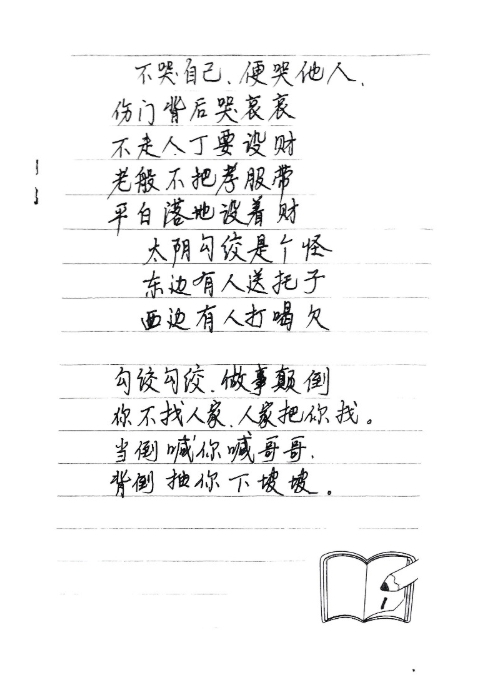 不哭自己、便哭他人、
伤门背后哭哀哀
不走人丁要设财
老般不把孝服带
平白落地设着财
太阴勾绞是个怪
东边有人送托子
西边有人打喝欠
勾绞勾绞、做事颠倒
你不找人家、人家把你找。
当倒喊你喊哥哥、
背倒抽你下坡坡。